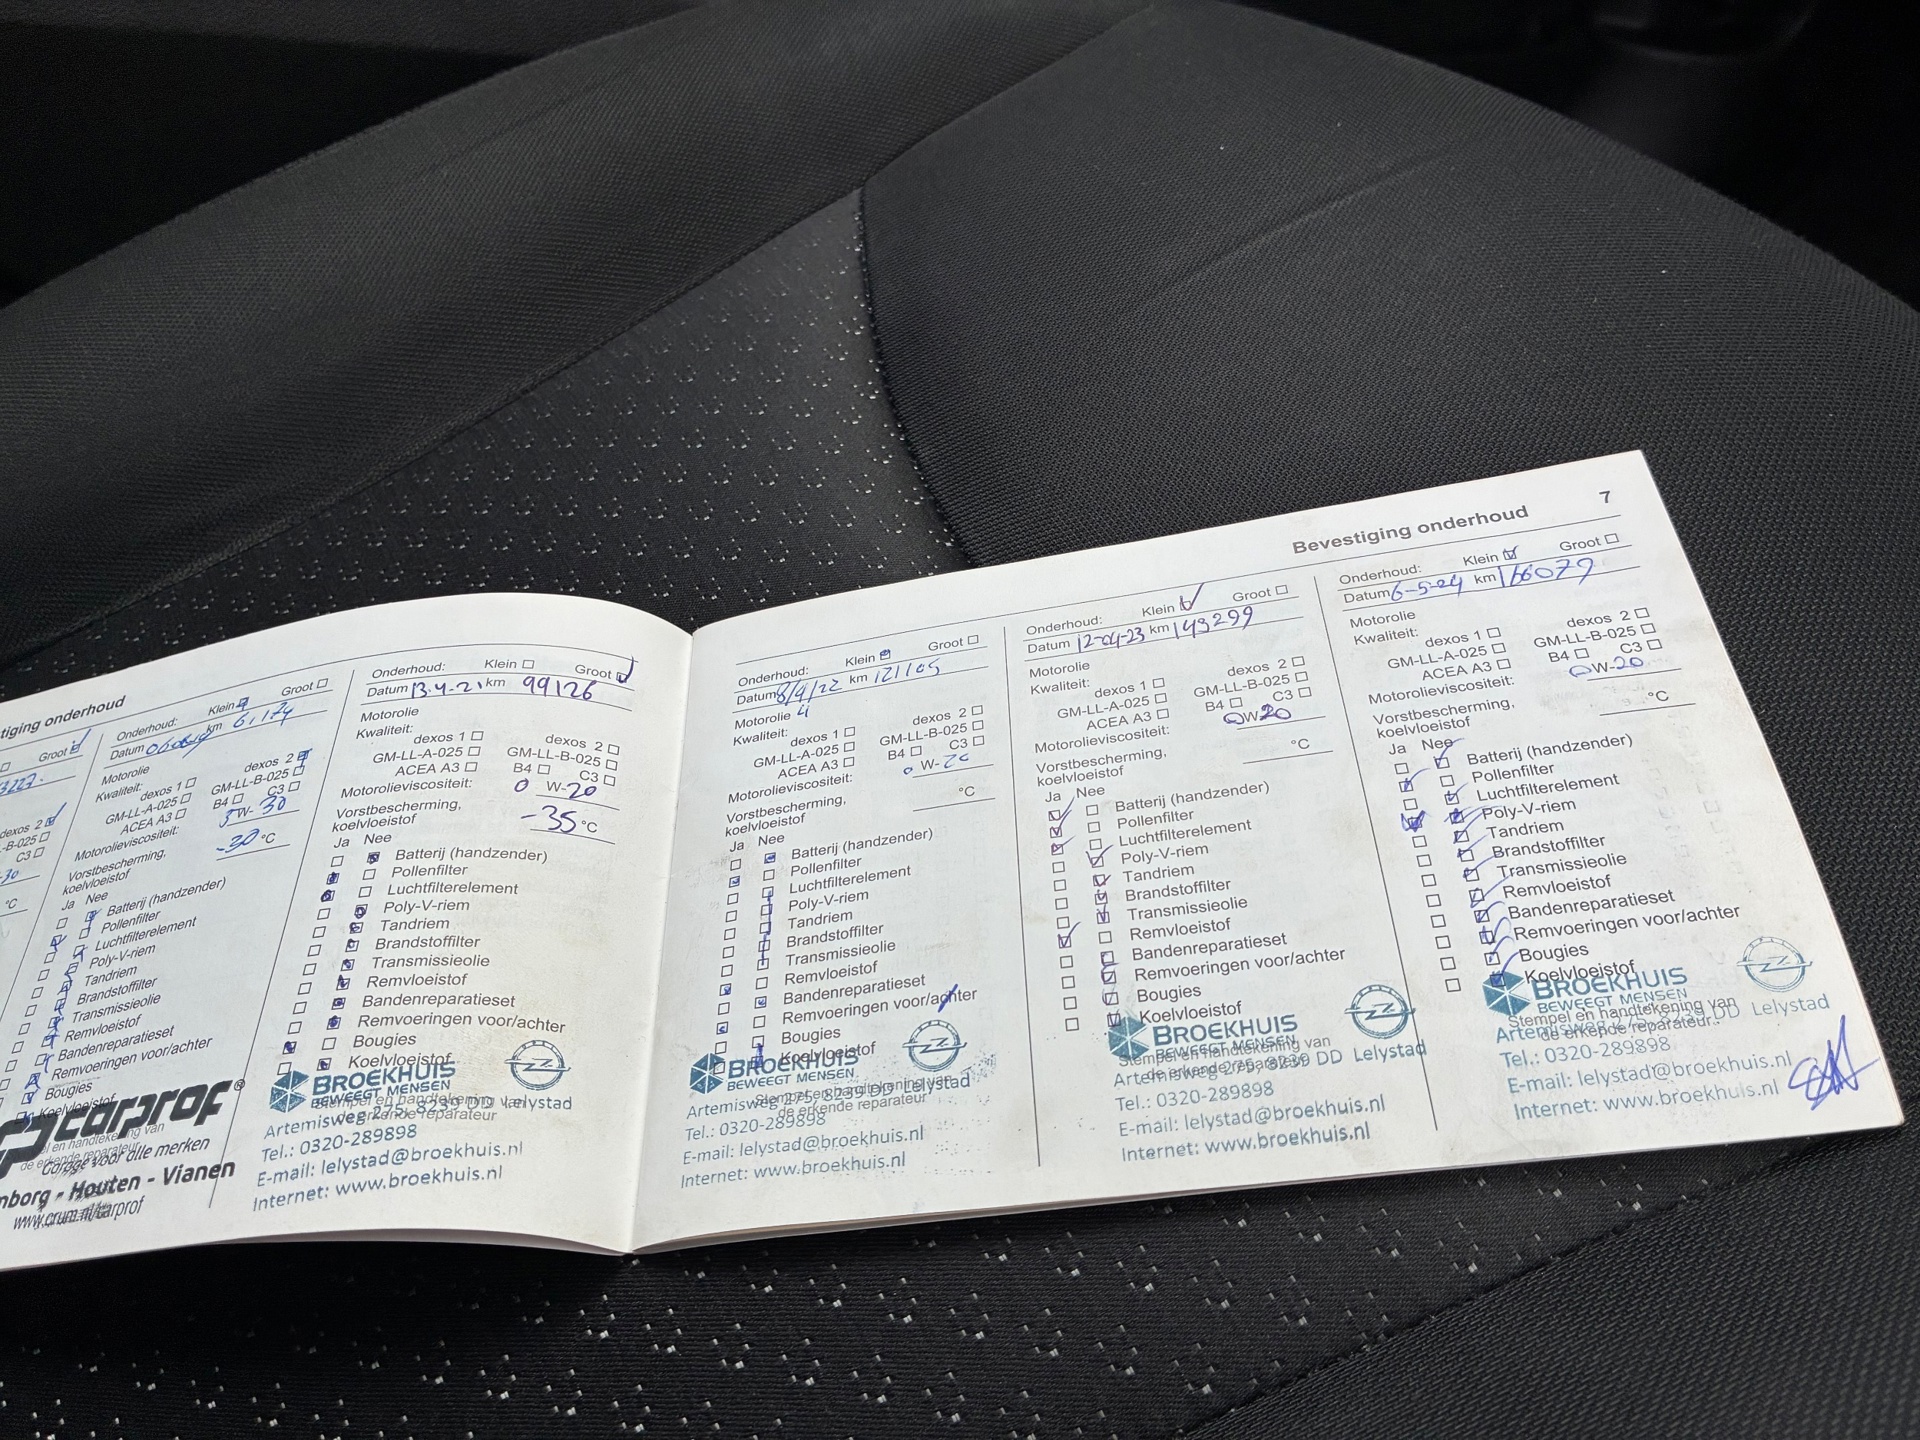 tiging onderhoud
Groot
dexos 2
B-025
C3
°C
Onderhoud: Klein Groot
Datum km
Motorolie
Kwaliteit: dexos 2
dexos 1 GM-LL-B-025
GM-LL-A-025 B4 C3
ACEA A3
Motorolieviscositeit: 5W-30
Vorstbescherming,
koelvloeistof -30 °C
Ja Nee
Batterij (handzender)
Pollenfilter
Luchtfilterelement
Poly-V-riem
Tandriem
Brandstoffilter
Transmissieolie
Remvloeistof
Bandenreparatieset
Remvoeringen voor/achter
Bougies
Koelvloeistof
carprof®
de erkende reparateur
Garage voor alle merken
nborg - Houten - Vianen
www.crum.nl/carprof
Onderhoud: Klein Groot
Datum 13-4-21 km 99126
Motorolie
Kwaliteit:
dexos 1 dexos 2
GM-LL-A-025 GM-LL-B-025
ACEA A3 B4 C3
Motorolieviscositeit: 0 W-20
Vorstbescherming,
koelvloeistof -35 °C
Ja Nee
Batterij (handzender)
Pollenfilter
Luchtfilterelement
Poly-V-riem
Tandriem
Brandstoffilter
Transmissieolie
Remvloeistof
Bandenreparatieset
Remvoeringen voor/achter
Bougies
Koelvloeistof
BROEKHUIS
BEWEEGT MENSEN
Stempel en handtekening van
de erkende reparateur
Artemisweg 275, 8239 DD Lelystad
Tel.: 0320-289898
E-mail: lelystad@broekhuis.nl
Internet: www.broekhuis.nl
Bevestiging onderhoud 7
Onderhoud: Klein Groot
Datum 8/4/22 km 121105
Motorolie
Kwaliteit:
dexos 1 dexos 2
GM-LL-A-025 GM-LL-B-025
ACEA A3 B4 C3
Motorolieviscositeit: 0 W-20
Vorstbescherming,
koelvloeistof °C
Ja Nee
Batterij (handzender)
Pollenfilter
Luchtfilterelement
Poly-V-riem
Tandriem
Brandstoffilter
Transmissieolie
Remvloeistof
Bandenreparatieset
Remvoeringen voor/achter
Bougies
Koelvloeistof
BROEKHUIS
BEWEEGT MENSEN
Stempel en handtekening van
de erkende reparateur
Artemisweg 275, 8239 DD Lelystad
Tel.: 0320-289898
E-mail: lelystad@broekhuis.nl
Internet: www.broekhuis.nl
Onderhoud: Klein Groot
Datum 12-04-23 km 143299
Motorolie
Kwaliteit:
dexos 1 dexos 2
GM-LL-A-025 GM-LL-B-025
ACEA A3 B4 C3
Motorolieviscositeit: 0W20
Vorstbescherming,
koelvloeistof °C
Ja Nee
Batterij (handzender)
Pollenfilter
Luchtfilterelement
Poly-V-riem
Tandriem
Brandstoffilter
Transmissieolie
Remvloeistof
Bandenreparatieset
Remvoeringen voor/achter
Bougies
Koelvloeistof
BROEKHUIS
BEWEEGT MENSEN
Stempel en handtekening van
de erkende reparateur
Artemisweg 275, 8239 DD Lelystad
Tel.: 0320-289898
E-mail: lelystad@broekhuis.nl
Internet: www.broekhuis.nl
Onderhoud: Klein Groot
Datum 6-5-24 km 166079
Motorolie
Kwaliteit:
dexos 1 dexos 2
GM-LL-A-025 GM-LL-B-025
ACEA A3 B4 C3
Motorolieviscositeit: 0W-20
Vorstbescherming,
koelvloeistof °C
Ja Nee
Batterij (handzender)
Pollenfilter
Luchtfilterelement
Poly-V-riem
Tandriem
Brandstoffilter
Transmissieolie
Remvloeistof
Bandenreparatieset
Remvoeringen voor/achter
Bougies
Koelvloeistof
BROEKHUIS
BEWEEGT MENSEN
Stempel en handtekening van
de erkende reparateur
Artemisweg 275, 8239 DD Lelystad
Tel.: 0320-289898
E-mail: lelystad@broekhuis.nl
Internet: www.broekhuis.nl